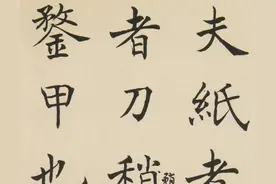 夫紙者
者刀稍
鍪甲也